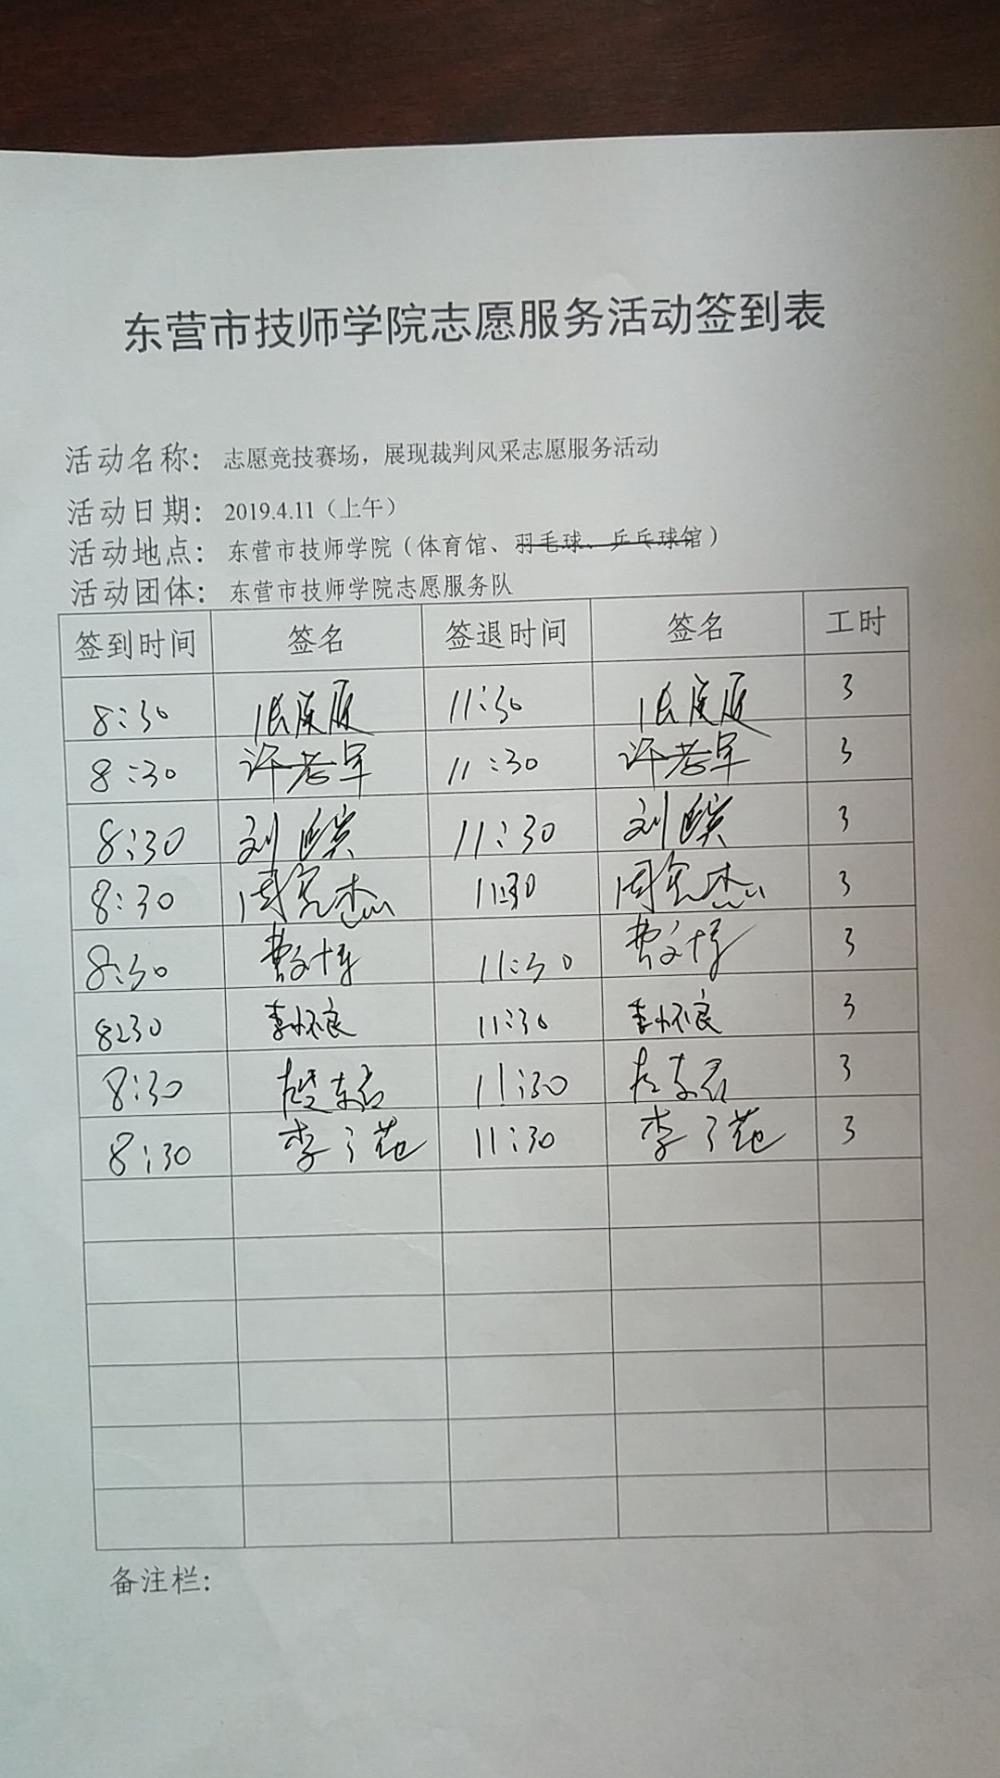 东营市技师学院志愿服务活动签到表
活动名称：志愿竞技赛场，展现裁判风采志愿服务活动
活动日期：2019.4.11（上午）
活动地点：东营市技师学院（体育馆、羽毛球、乒乓球馆）
活动团体：东营市技师学院志愿服务队
签到时间 签名 签退时间 签名 工时
8:30 11:30 3
8:30 许孝军 11:30 许孝军 3
8:30 刘 11:30 刘 3
8:30 周 杰 11:30 周 杰 3
8:30 11:30 3
8:30 李怀良 11:30 李怀良 3
8:30 11:30 3
8:30 李 11:30 李 3
备注栏：